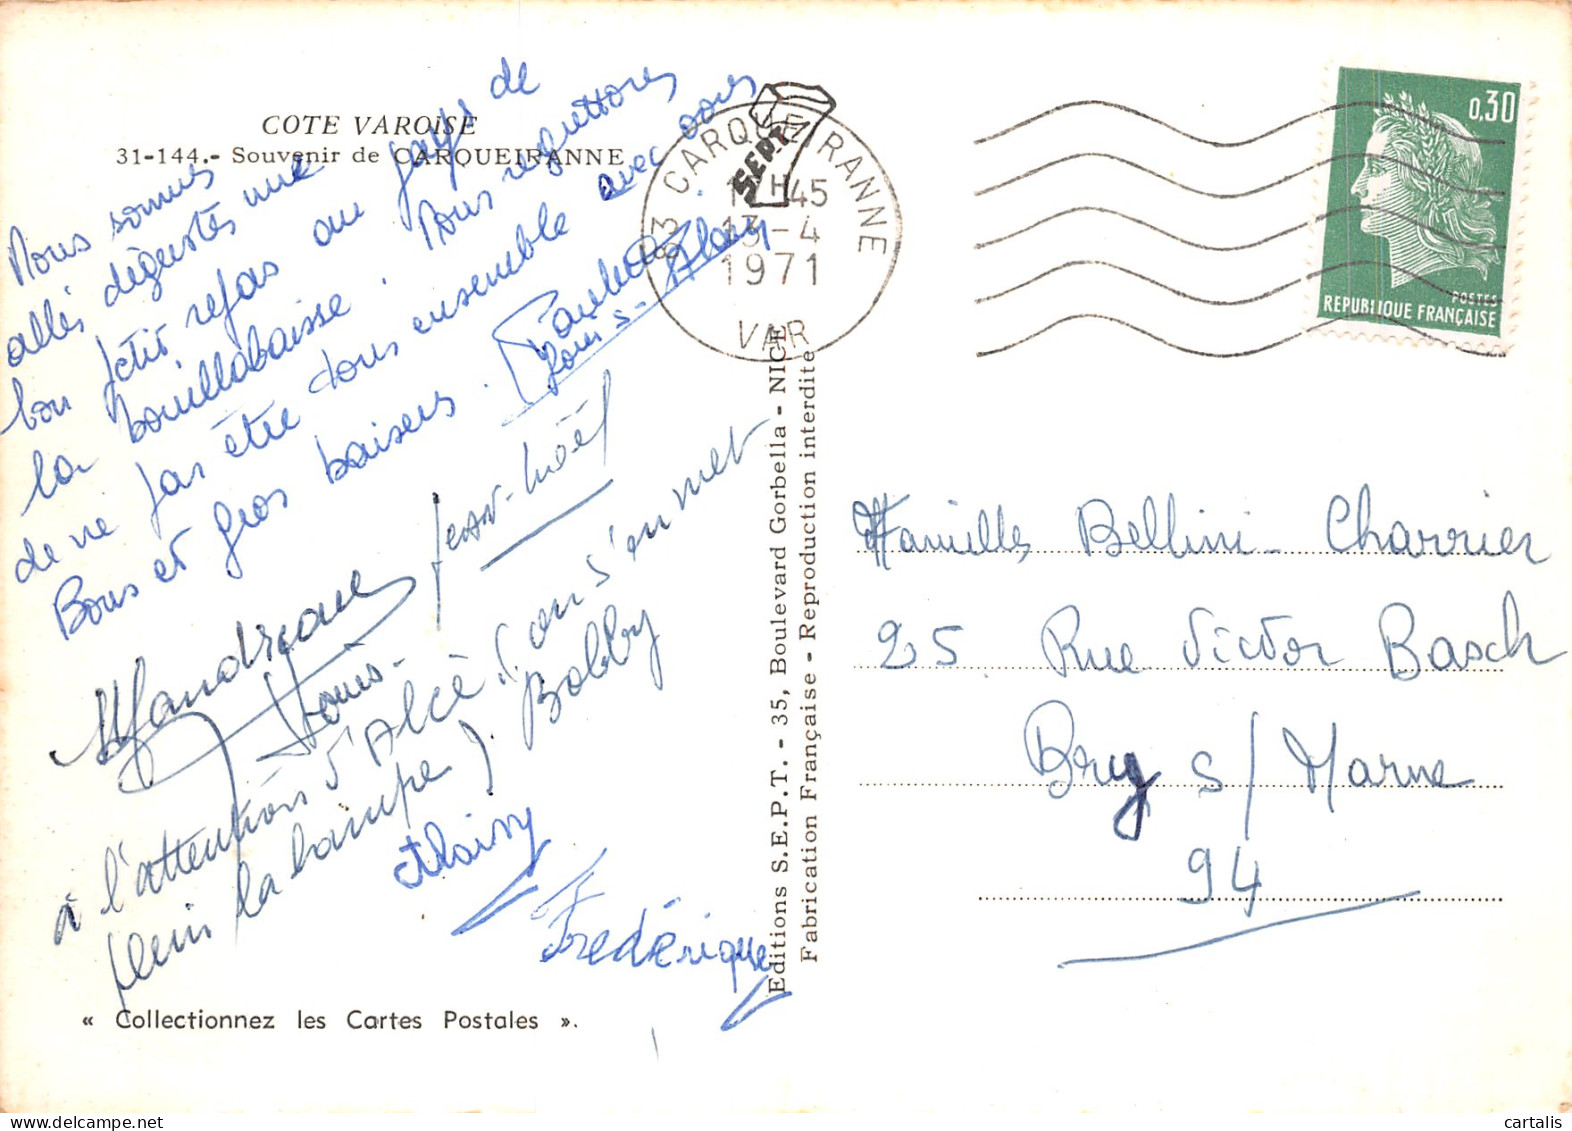 COTE VAROISE
31-144.- Souvenir de CARQUEIRANNE
Nous sommes
allés dégustés une
bon petit repas au pays de
la bouillabaisse. Nous regrettons
de ne pas être tous ensemble avec vous
Bons et gros baisers.
Louis-
Jean-Noël
Louis-
à l'attention d'Alcé! (on s'en met
plein la lampe) Bobby
Frédérique
« Collectionnez les Cartes Postales ».
Editions S.E.P.T. - 35, Boulevard Gorbella - NICE
Fabrication Française - Reproduction interdite
SEPT
83 CARQUEIRANNE
17H45
13-4
1971
VAR
0,30
POSTES
REPUBLIQUE FRANÇAISE
Familles Bellini-Charrier
25 Rue Victor Basch
Bry s/Marne
94
cartalis